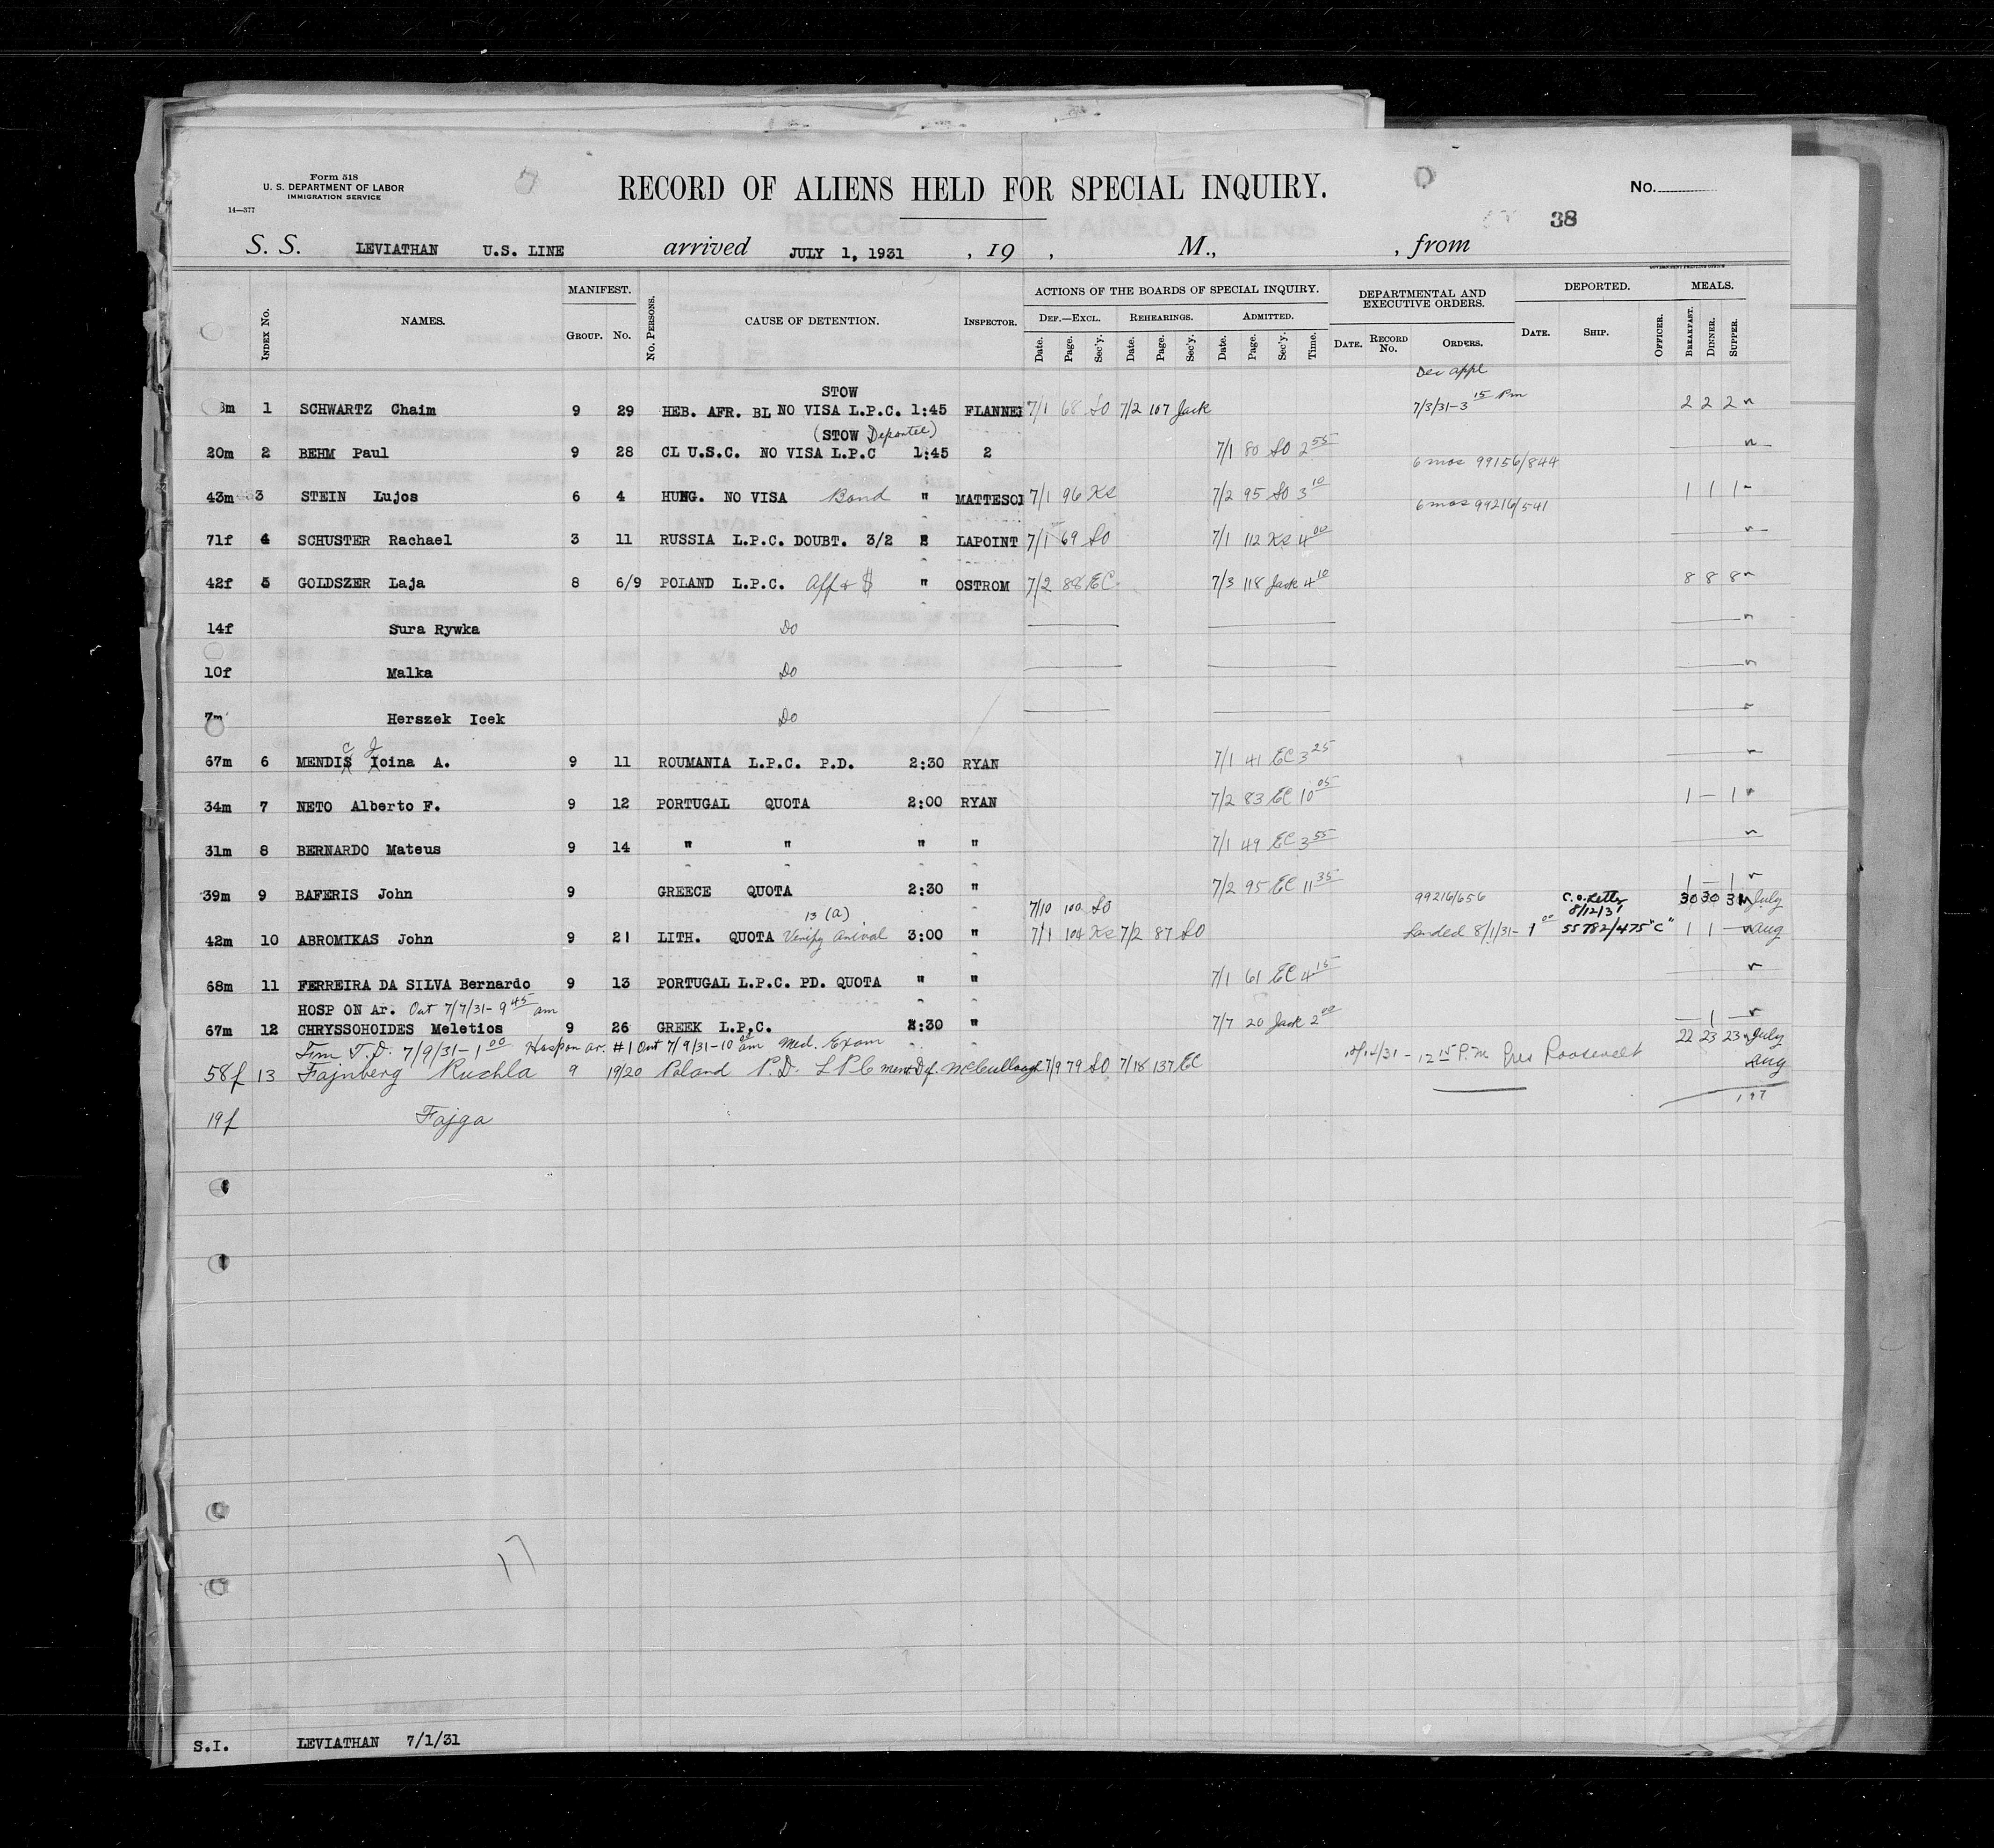 Form 518
U. S. DEPARTMENT OF LABOR
IMMIGRATION SERVICE
14—377
RECORD OF ALIENS HELD FOR SPECIAL INQUIRY.
No.
38
S. S. LEVIATHAN U.S. LINE arrived JULY 1, 1931 , 19 , M., , from
INDEX No. NAMES. MANIFEST. GROUP. No. No. PERSONS. CAUSE OF DETENTION. INSPECTOR. ACTIONS OF THE BOARDS OF SPECIAL INQUIRY. DEF.—EXCL. Date. Page. Sec'y. REHEARINGS. Date. Page. Sec'y. ADMITTED. Date. Page. Sec'y. Time. DEPARTMENTAL AND EXECUTIVE ORDERS. DATE. RECORD No. ORDERS. DEPORTED. DATE. SHIP. OFFICER. MEALS. BREAKFAST. DINNER. SUPPER.
STOW
m 1 SCHWARTZ Chaim 9 29 HEB. AFR. BL NO VISA L.P.C. 1:45 FLANNE 7/1 68 SO 7/2 107 Jack 7/3/31-3 15 Pm 2 2 2
(STOW Deportee)
20m 2 BEHM Paul 9 28 CL U.S.C. NO VISA L.P.C 1:45 2 7/1 80 SO 2 55
6 mos 99156/844
43m 3 STEIN Lujos 6 4 HUNG. NO VISA Bond " MATTESO 7/1 96 Ks 7/2 95 SO 3 10 1 1 1
6 mos 99216/541
71f 4 SCHUSTER Rachael 3 11 RUSSIA L.P.C. DOUBT. 3/2 LAPOINT 7/1 69 SO 7/1 112 Ks 4 00
42f 5 GOLDSZER Laja 8 6/9 POLAND L.P.C. Aff & $ " OSTROM 7/2 88 EC 7/3 118 Jack 4 10 8 8 8
14f Sura Rywka Do
10f Malka Do
7m Herszek Icek Do
67m 6 MENDIS Icina A. 9 11 ROUMANIA L.P.C. P.D. 2:30 RYAN 7/1 41 EC 3 25
34m 7 NETO Alberto F. 9 12 PORTUGAL QUOTA 2:00 RYAN 7/2 83 EC 10 05 1 — 1
31m 8 BERNARDO Mateus 9 14 " " " " 7/1 49 EC 3 55
39m 9 BAFERIS John 9 GREECE QUOTA 2:30 " 7/2 95 EC 11 35 1 — 1
13 (a) 7/10 100 SO 99216/656 C.O. Letter 8/12/31 30 30 31 July
42m 10 ABROMIKAS John 9 21 LITH. QUOTA Verify Arrival 3:00 " 7/1 104 Ks 7/2 87 SO Landed 8/1/31- 1 00 55782/475 "C" 1 1 — Aug
68m 11 FERREIRA DA SILVA Bernardo 9 13 PORTUGAL L.P.C. PD. QUOTA " " 7/1 61 EC 4 15
HOSP ON Ar. Out 7/7/31- 9 45 am
67m 12 CHRYSSOHOIDES Meletios 9 26 GREEK L.P.C. 2:30 " 7/7 20 Jack 2 00 — 1 —
Fm T.D. 7/9/31-1 00 Hosp on ar. #1 Out 7/9/31-10 00 am Med. Exam 22 23 23 July
58f 13 Fajnberg Ruchla 9 19/20 Poland P.D. L P C ment Def. McCullough 7/9 79 SO 7/18 137 EC 10/14/31 - 12 15 P.M Pres Roosevelt Aug
197
19f Fajga
17
S.I. LEVIATHAN 7/1/31